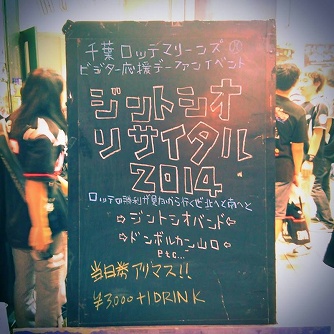 千葉ロッテマリーンズ
ビジター応援デーファンイベント
ジントシオ
リサイタル
2014
ロッテの勝利が見たから行くぜ北へ南へと
⇨ジントシオバンド⇦
⇨ドンボルカン山口⇦
etc...
当日券アリマス!!
¥3,000+1DRINK